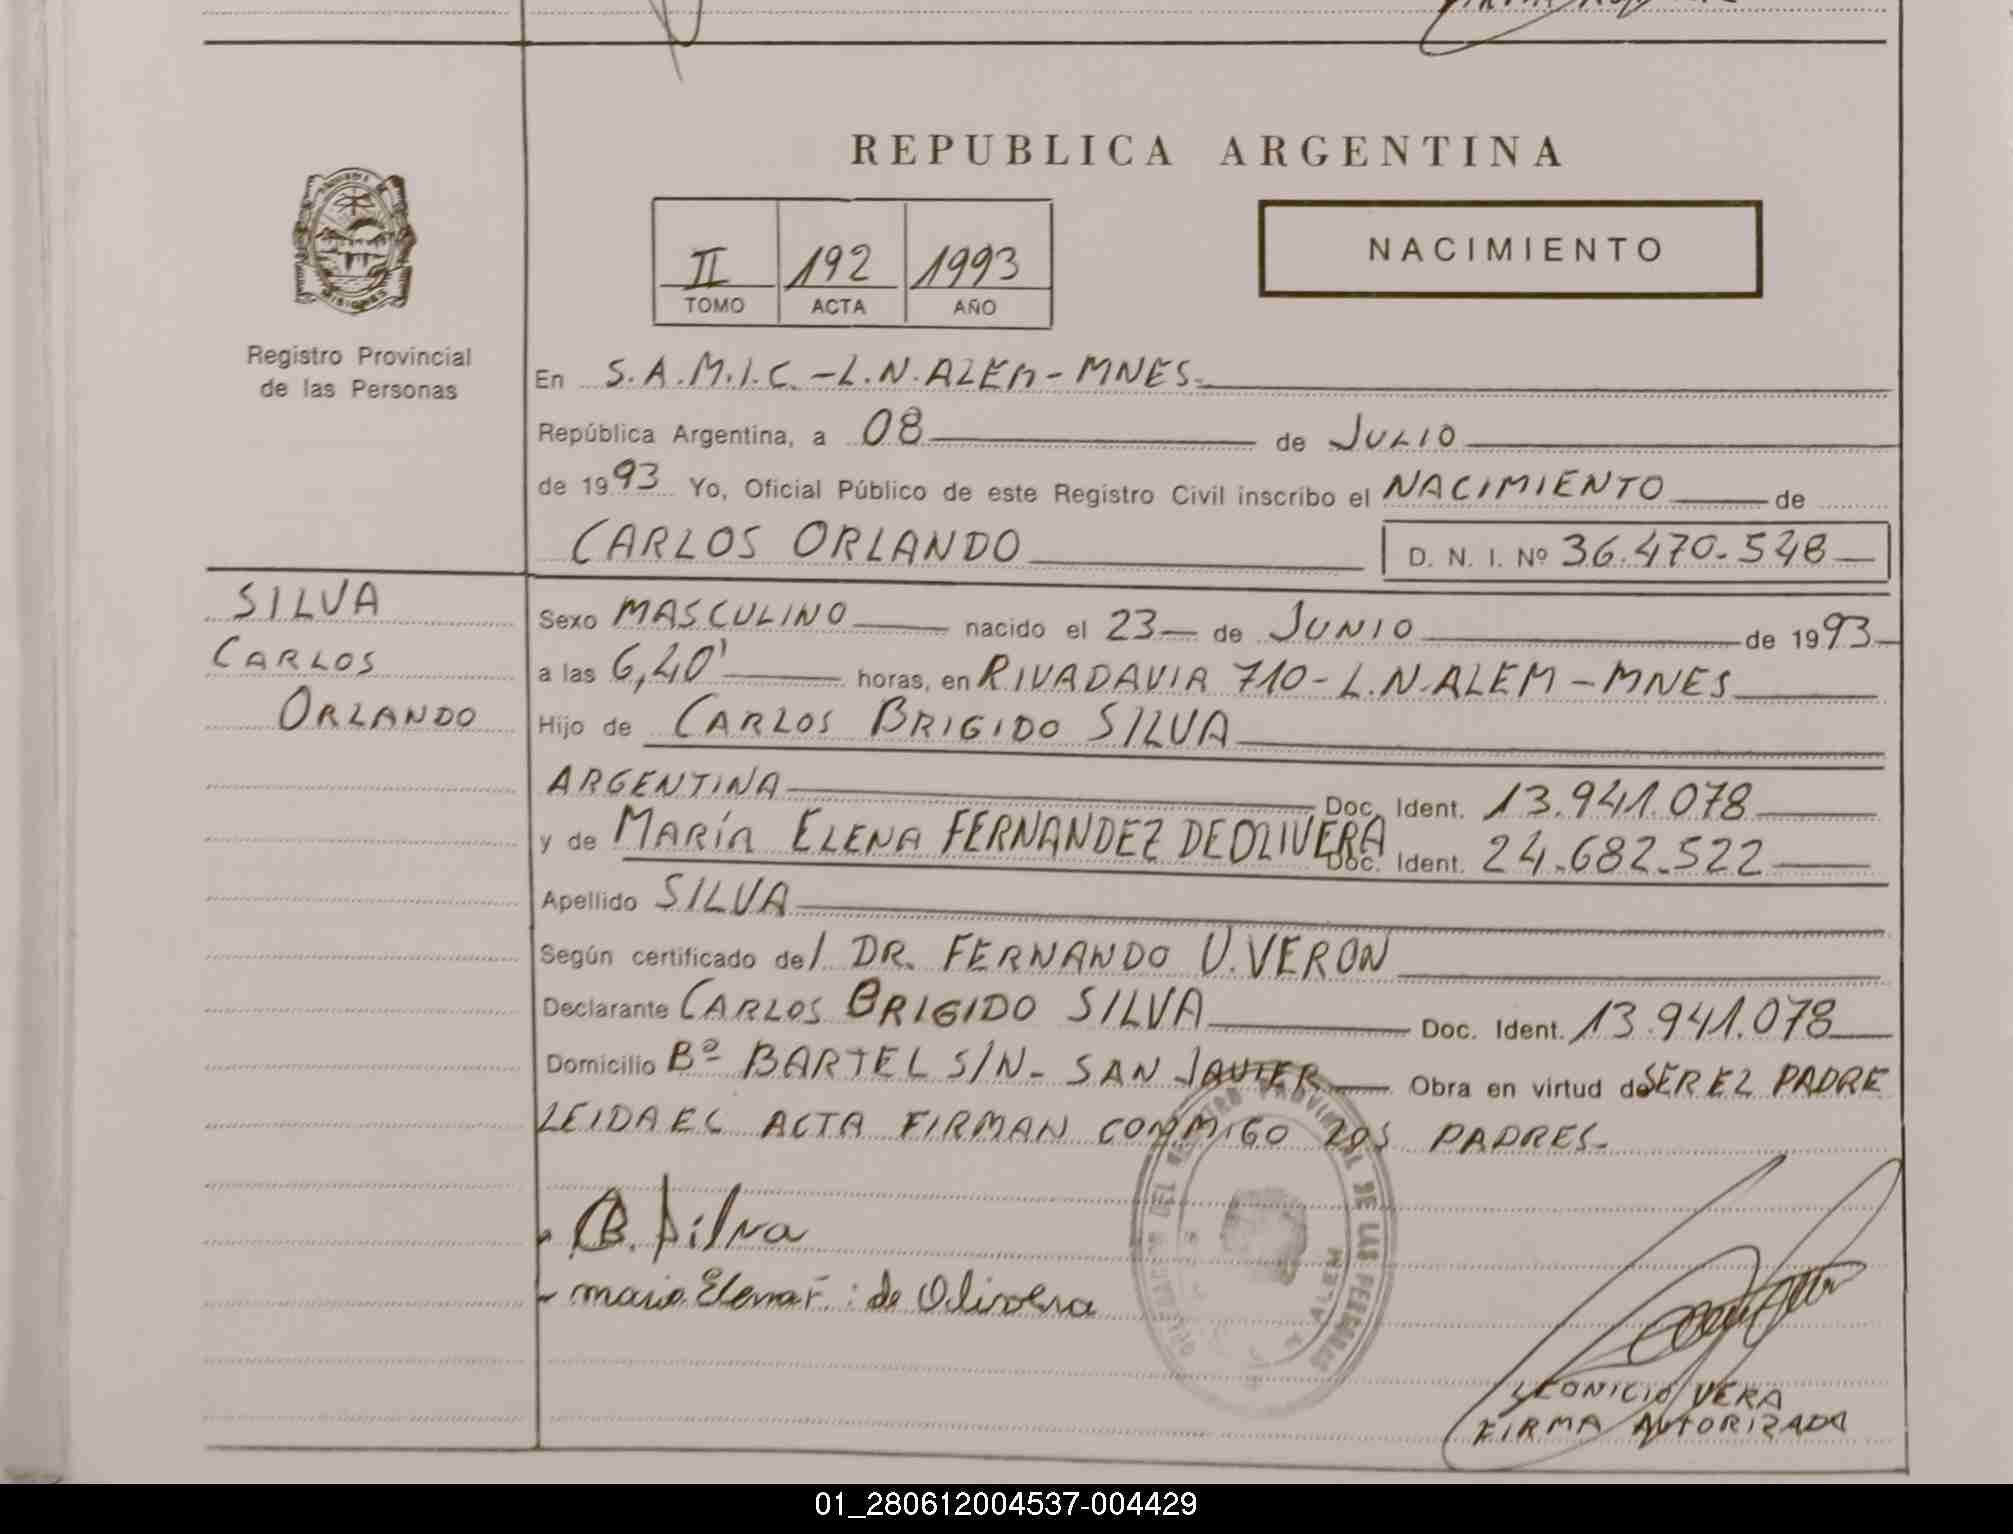 REPUBLICA ARGENTINA
II 192 1993
TOMO ACTA AÑO
NACIMIENTO
Registro Provincial
de las Personas
En S.A.M.I.C. - L.N. ALEM - MNES.
República Argentina, a 08 de JULIO
de 1993 Yo, Oficial Público de este Registro Civil inscribo el NACIMIENTO de
CARLOS ORLANDO D. N. I. Nº 36.470.548
SILVA
CARLOS
ORLANDO
Sexo MASCULINO nacido el 23 de JUNIO de 1993
a las 6,40' horas, en RIVADAVIA 710 - L.N. ALEM - MNES
Hijo de CARLOS BRIGIDO SILVA
ARGENTINA Doc. Ident. 13.941.078
y de MARÍA ELENA FERNANDEZ DEOLIVERA Doc. Ident. 24.682.522
Apellido SILVA
Según certificado del DR. FERNANDO U. VERON
Declarante CARLOS BRIGIDO SILVA Doc. Ident. 13.941.078
Domicilio Bº BARTEL S/N - SAN JAVIER Obra en virtud de SER EL PADRE
LEIDA EL ACTA FIRMAN CONMIGO LOS PADRES.
B. Silva
maria Elena F. de Olivera
REGISTRO PROVINCIAL DE LAS PERSONAS
ALEM
LEONICIO VERA
FIRMA AUTORIZADA
01_280612004537-004429